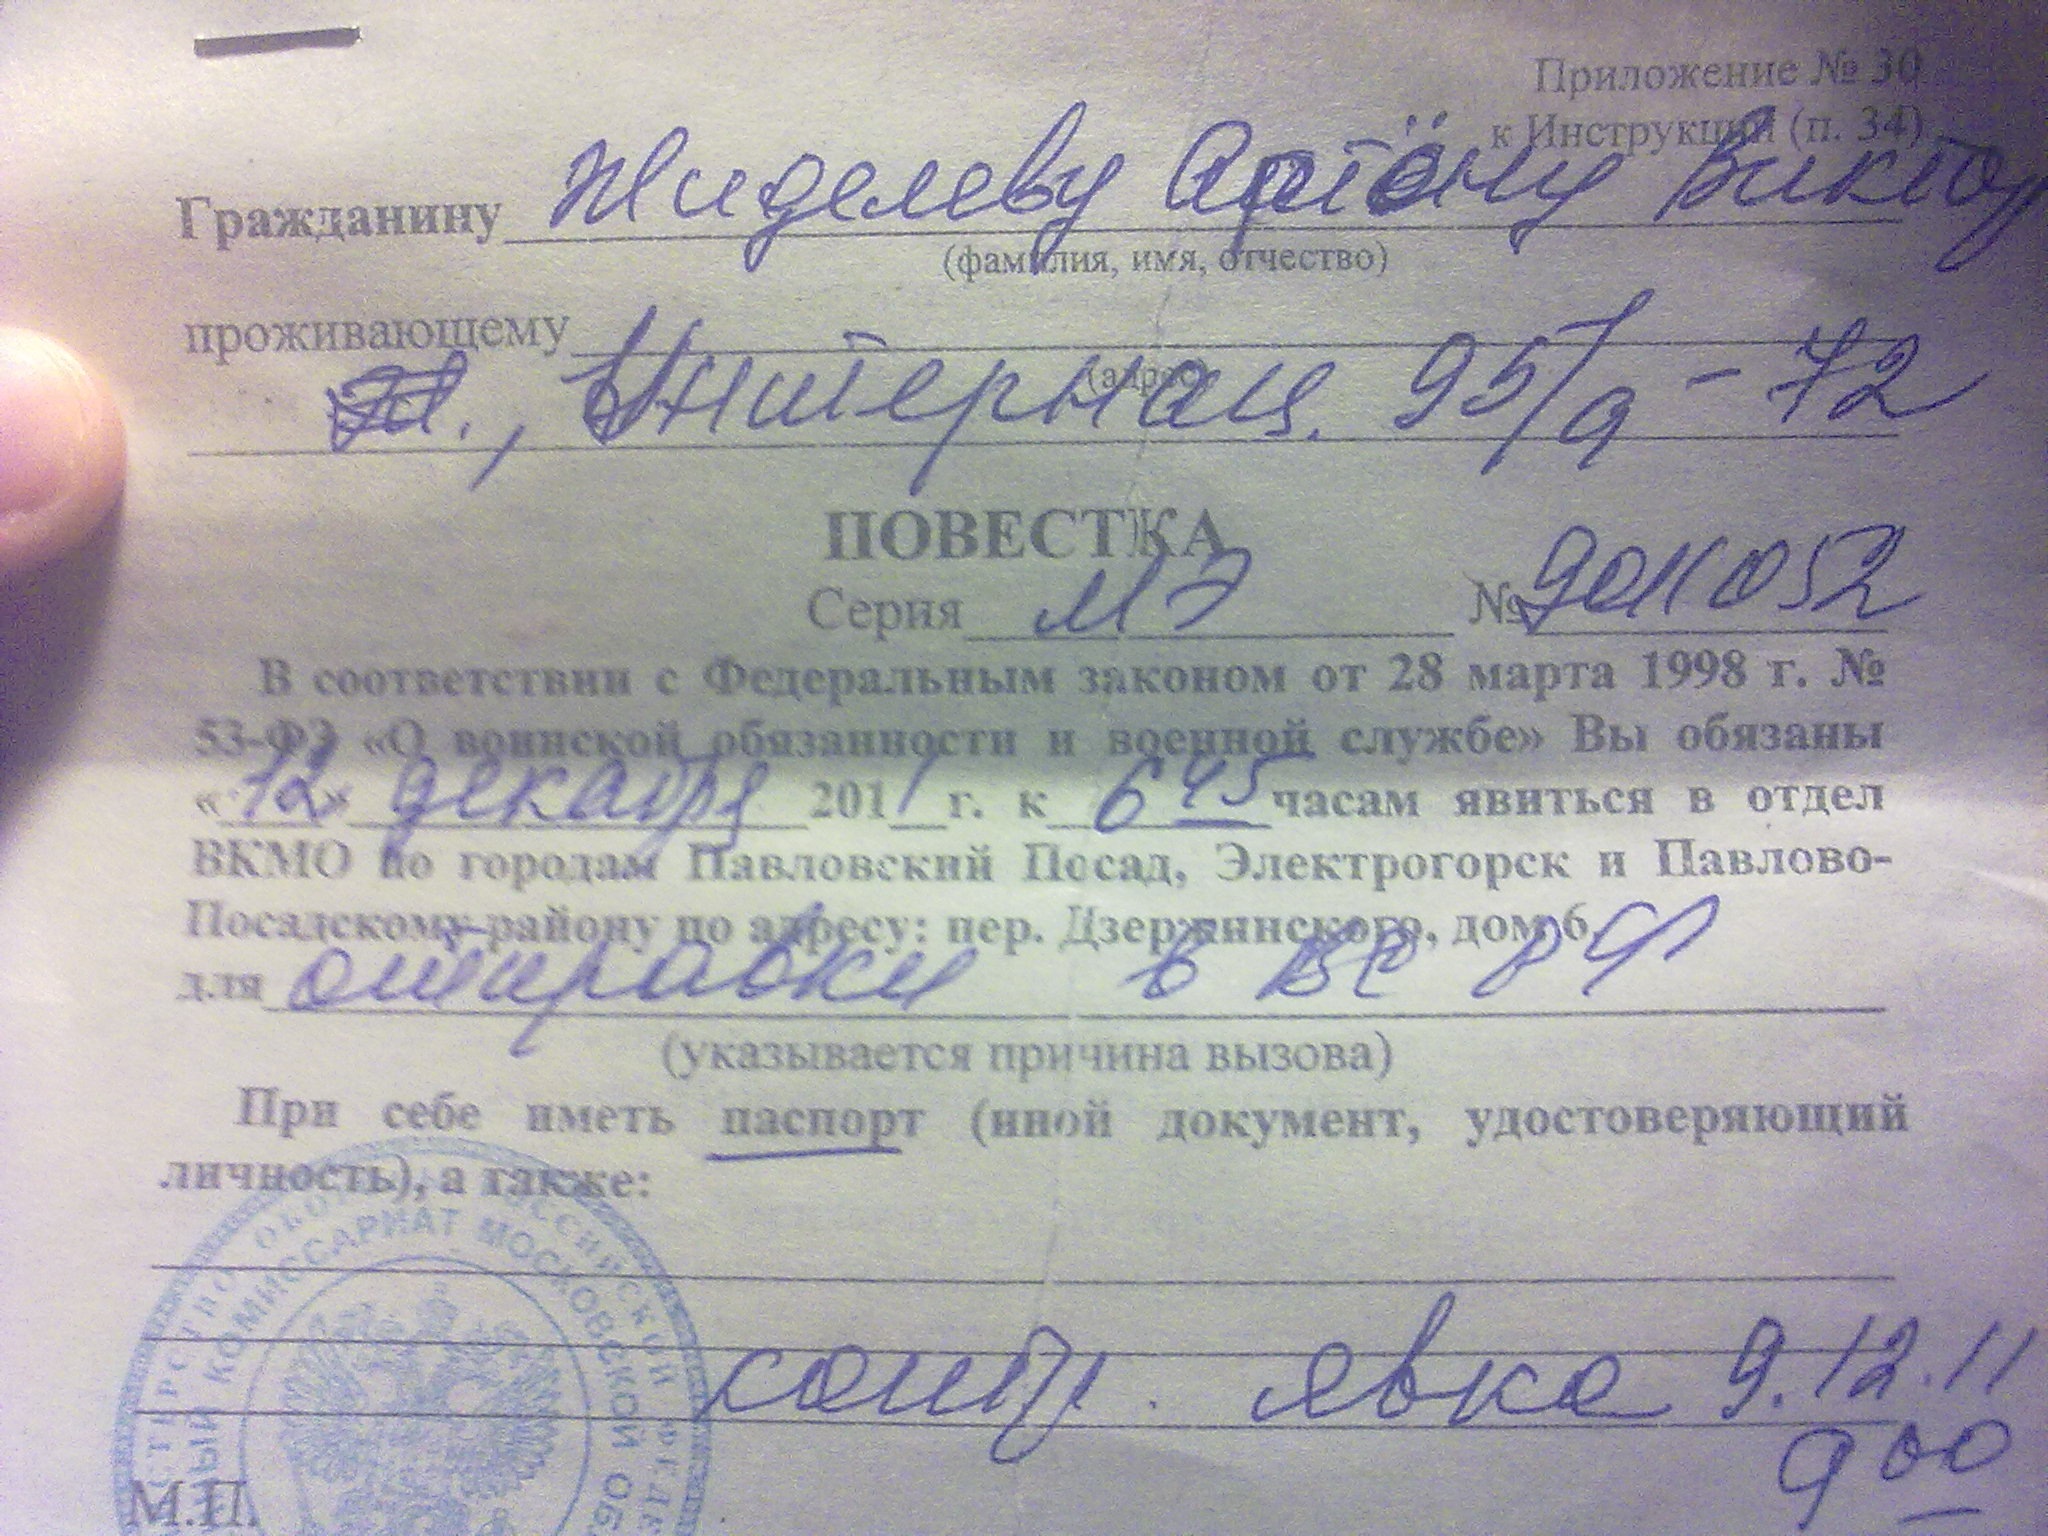 Приложение № 30
к Инструкции (п. 34)
Гражданину Жиделеву Артёму Виктор
(фамилия, имя, отчество)
проживающему
(адрес)
Интернац. 95/а - 72
ПОВЕСТКА
Серия МЭ №
В соответствии с Федеральным законом от 28 марта 1998 г. №
53-ФЗ «О воинской обязанности и военной службе» Вы обязаны
«12» декабря 2011 г. к 6 45 часам явиться в отдел
ВКМО по городам Павловский Посад, Электрогорск и Павлово-
Посадскому району по адресу: пер. Дзержинского, дом 6,
для отправки в ВС РФ
(указывается причина вызова)
При себе иметь паспорт (иной документ, удостоверяющий
личность), а также:
контр. явка 9.12.11
9 00
М.П.
КОМИССАРИАТ МОСКОВСКОЙ